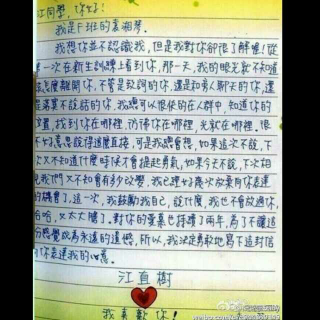 江同學,你好!
我是F班的袁湘琴。
我想你並不認識我,但是我對你卻很了解喔!從
第一次在新生訓練上看到你,那一天,我的眼光就不知道
該怎麼離開你,不管是致詞的你,還是和旁人聊天的你,還
是落單不說話的你,我總可以很快的在人群中,知道你的
位置,找到你在哪裡,彷彿你在哪裡,光就在哪裡,很
不好意思說得這麼直接,可是我總會想,如果這次不說,下
次又不知道什麼時候才會提起勇氣,如果今天不說,下次相
見我們又不知會有多少改變,我已經好幾次放棄向你表達
的機會了,這一次,我鼓勵我自己,說什麼,我也不會放過你,
哈哈,又太大膽了。對你的愛慕也持續了兩年,為了不讓這
份感覺成為永遠的遺憾,所以,我決定勇敢地寫下這封信
向你表達我的心意。
江直樹
我喜歡你!